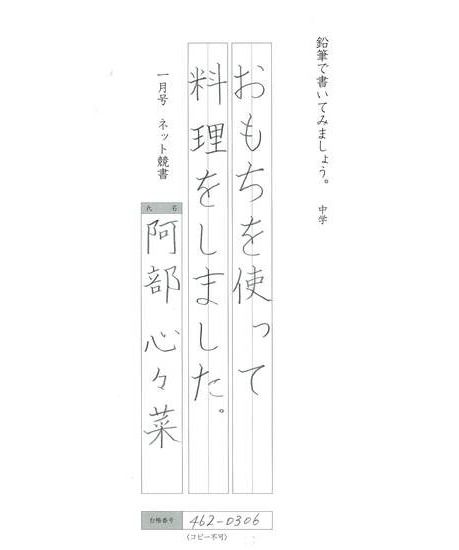 鉛筆で書いてみましょう。 中学
おもちを使って
料理をしました。
一月号 ネット競書
氏名
阿部 心々菜
台帳番号 462-0306
(コピー不可)